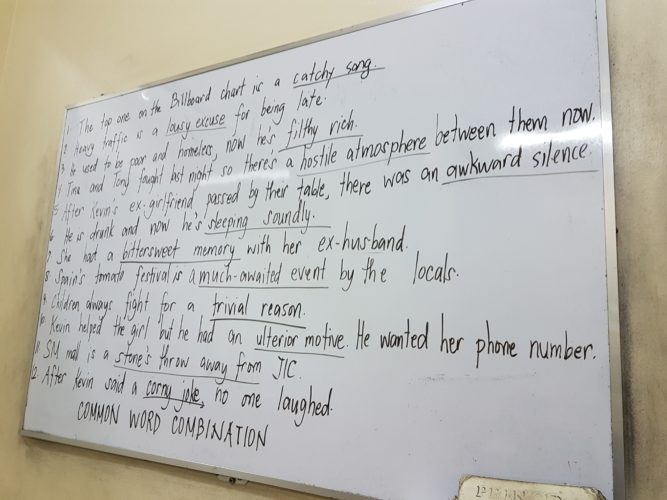 1. The top one on the Billboard chart is a catchy song.
2 Heavy traffic is a lousy excuse for being late.
3 He used to be poor and homeless, now he's filthy rich.
4 Tina and Tony fought last night so there's a hostile atmosphere between them now.
5 After Kevin's ex-girlfriend passed by their table, there was an awkward silence.
6 He is drunk and now he's sleeping soundly.
7 She had a bittersweet memory with her ex-husband.
8 Spain's tomato festival is a much-awaited event by the locals.
9 Children always fight for a trivial reason.
10 Kevin helped the girl but he had an ulterior motive. He wanted her phone number.
11 SM mall is a stone's throw away from JIC.
12 After Kevin said a corny joke, no one laughed.
COMMON WORD COMBINATION